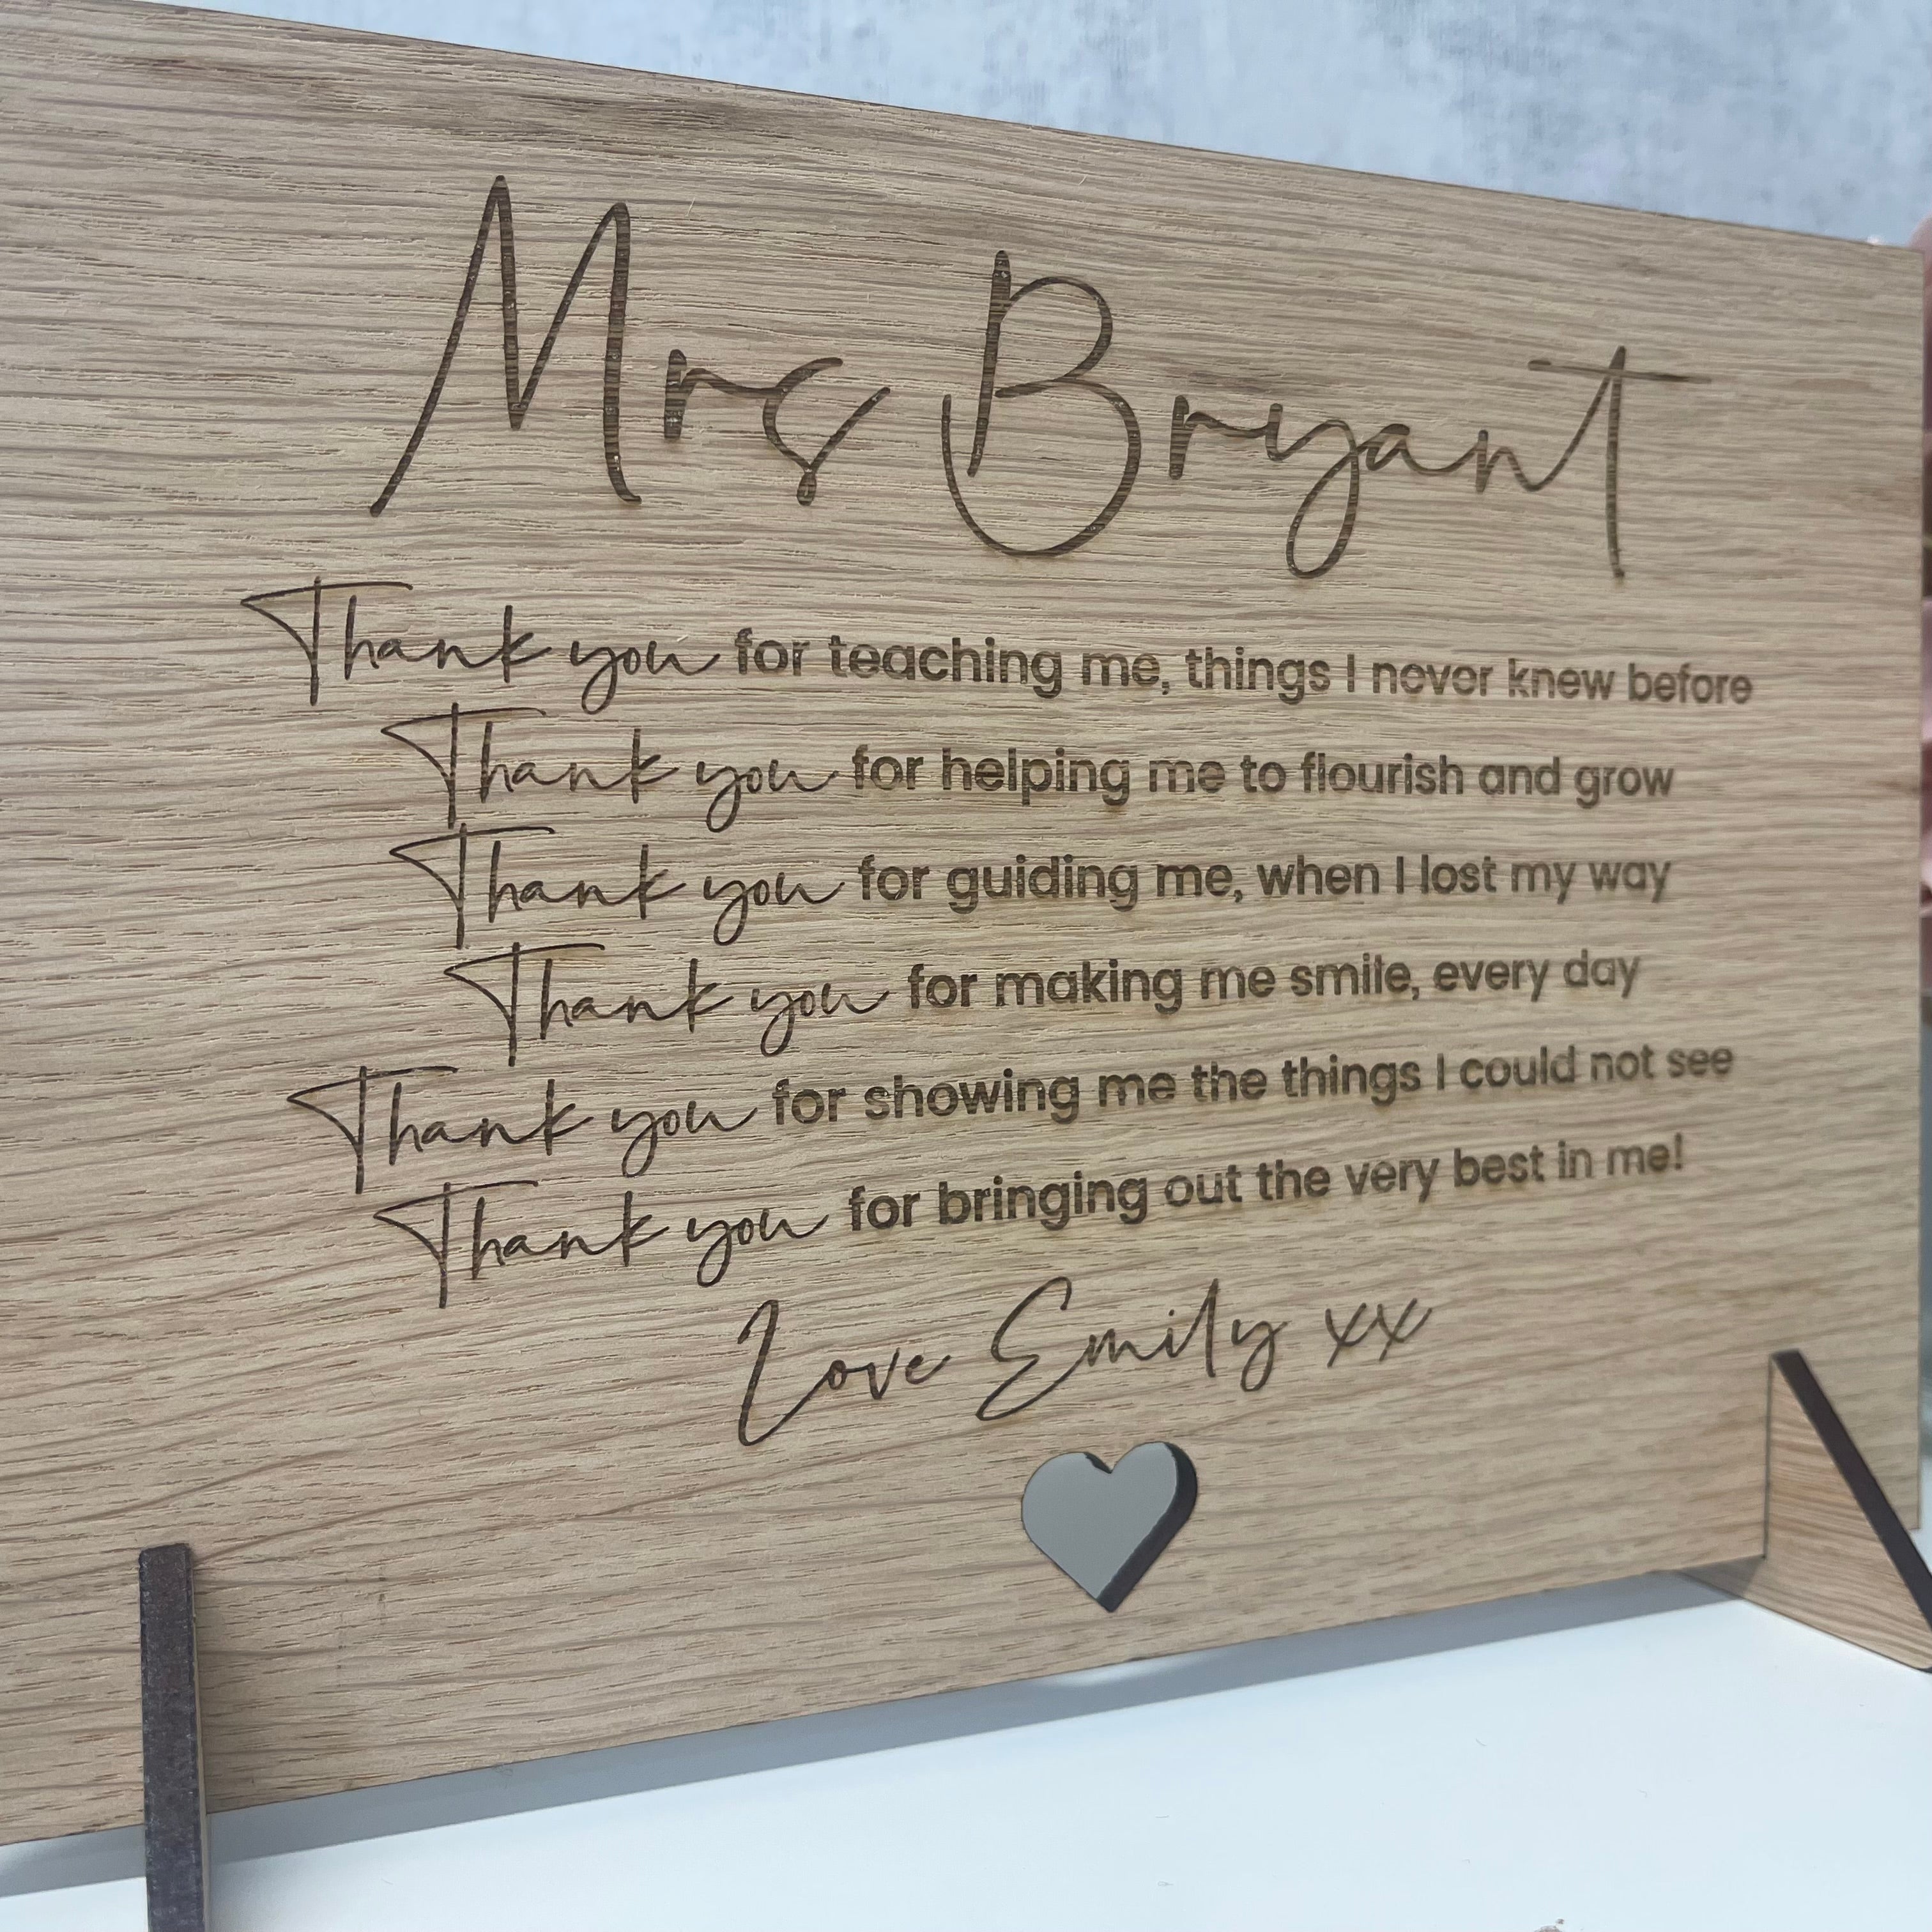 Mrs Bryant
Thank you for teaching me, things I never knew before
Thank you for helping me to flourish and grow
Thank you for guiding me, when I lost my way
Thank you for making me smile, every day
Thank you for showing me the things I could not see
Thank you for bringing out the very best in me!
Love Emily xx